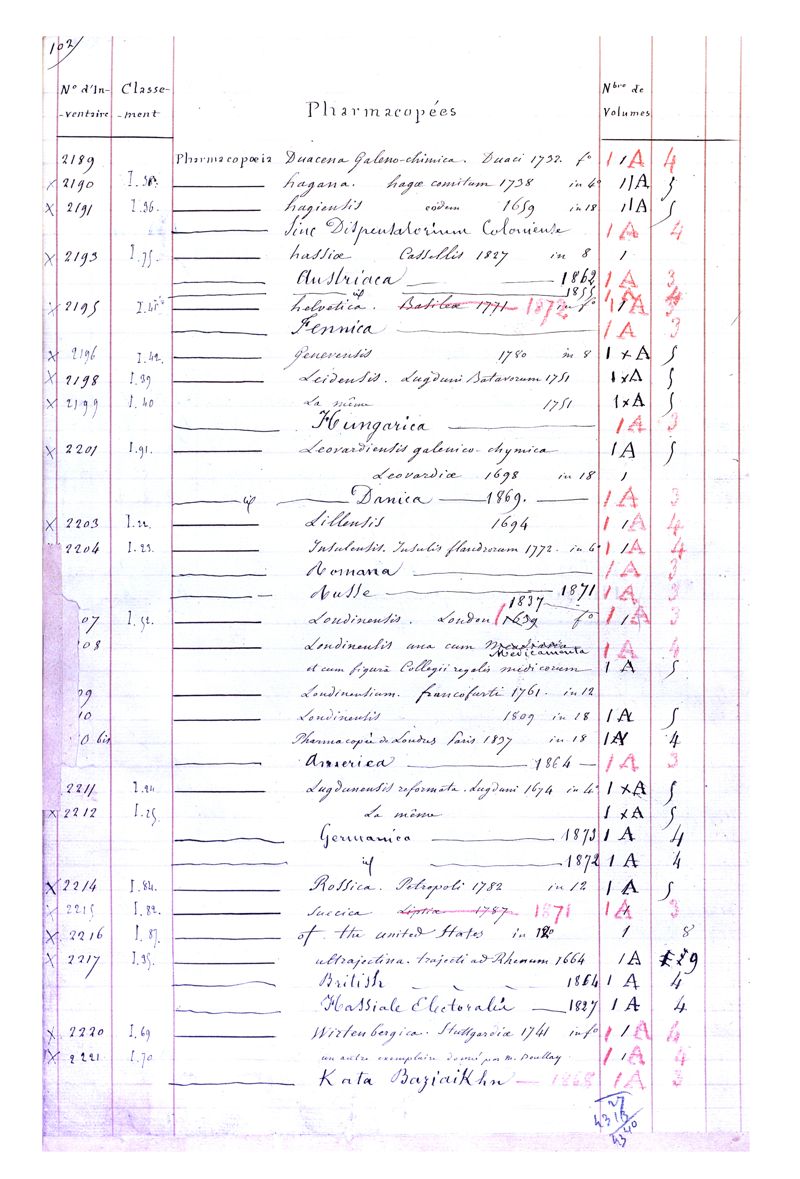 102
N° d'In-ventaire Classe-ment Pharmacopées Nbre de Volumes
2189 Pharmacopœia Duacena Galeno-chimica. Duaci 1732. f° 1 1 A 4
x 2190 I. hagana. hagæ comitum 1738 in 4° 1 A 5
x 2191 I.36. hagiensis eodem 1659 in 18 1 A 5
Sive Dispensatorium Coloniense 1 A 4
x 2193 I.75. hassiæ Cassellis 1827 in 8 1
Austriaca 1862 1 A 3
id 1855 1 A 4
x 2195 helvetica. Basileæ 1771 1872 in f° 1 1 A 3
Fennica 1 A 3
x 2196 I.42. Genevensis 1780 in 8 1 x A 5
x 2198 I.39 Leidensis. Lugduni Batavorum 1751 1 x A 5
x 2199 I.40 La même 1751 1 x A 5
Hungarica 1 A 3
x 2201 I.91. Leovardiensis galenico-chymica 1 A 5
Leovardiæ 1698 in 18 1
id Danica 1869. 1 A 3
x 2203 I.22. Lillensis 1694 1 1 A 4
2204 I.23. Insulensis. Insulis flandrorum 1772. in 6° 1 1 A 4
Romana 1 A 3
Russe 1871 1 A 3
1837
07 I.52. Londinensis. London 1639 f° 1 1 A 3
08 Londinensis una cum Medicamenta 1 A 4
et cum figurâ Collegii regalis medicorum 1 A 5
09 Londinensium. francofurti 1761. in 12
10 Londinensis 1809 in 18 1 A 5
0 bis Pharmacopée de Londres Paris 1837 in 18 1 A 4
America 1864 1 A 3
2211 I.24 Lugdunensis reformata. Lugduni 1674 in 4° 1 x A 5
x 2212 I.25. La même 1 x A 5
Germanica 1873 1 A 4
id 1872 1 A 4
x 2214 I.84. Rossica. Petropoli 1782 in 12 1 A 5
x 2215 I.82. Suecica 1787 1871 1 A 3
x 2216 I.87. of the united States in 12° 1 8
x 2217 I.35. ultrajectina. trajecti ad Rhenum 1664 1 A 9
British 1864 1 A 4
Hassiale Electoralis 1827 1 A 4
x 2220 I.69 Wirtenbergica. Stuttgardiæ 1741 in f° 1 1 A 4
x 2221 I.70 un autre exemplaire donné par M. Boullay. 1 1 A 4
Kata 1868 1 A 3
27
4313
4340